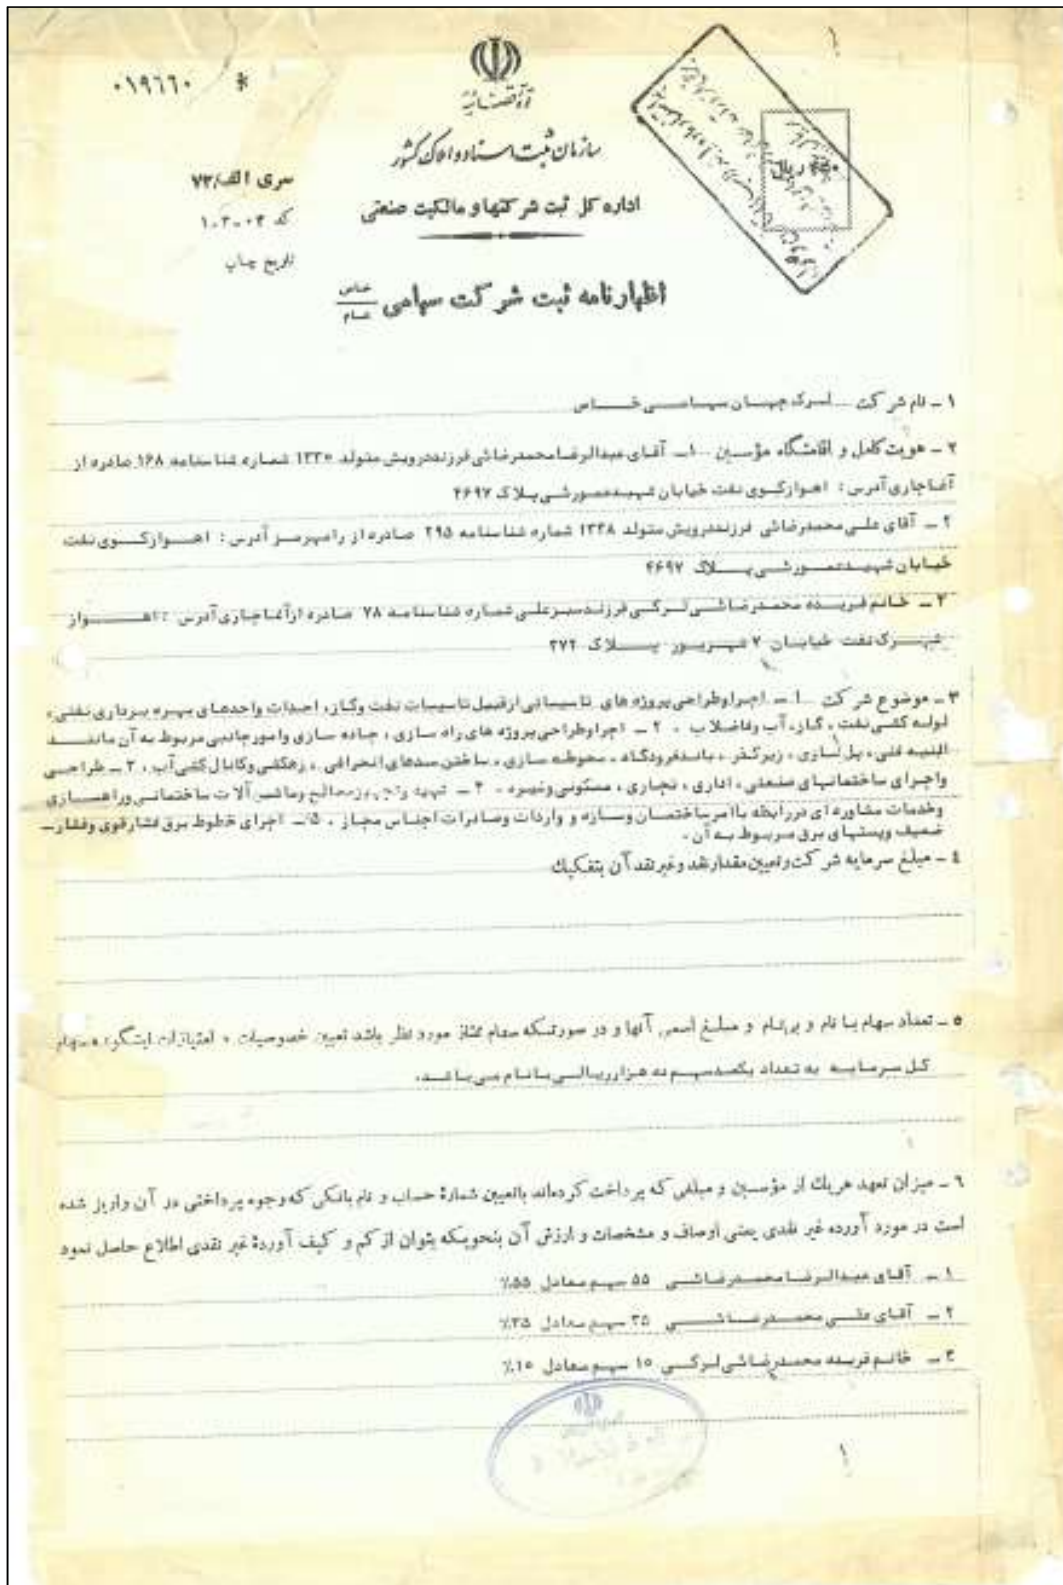 ۰۱۹۶۶۰ *
قوه قضائیه
سازمان ثبت اسناد و املاک کشور
سری الف/۷۳
اداره کل ثبت شرکتها و مالکیت صنعتی
تاریخ چاپ
اظهارنامه ثبت شرکت سهامی خاص
عام
ریال
۱ ـ نام شرکت ... لرک جهان سهامی خاص
۲ ـ هویت کامل و اقامتگاه مؤسسین ۱ـ آقای عبدالرضا محمدرضائی فرزند درویش متولد ۱۳۳۵ شماره شناسنامه ۱۶۸ صادره از
آغاجاری آدرس : اهواز کوی نفت خیابان شهید پلاک ۴۶۹۷
۲ ـ آقای علی محمدرضائی فرزند درویش متولد ۱۳۳۸ شماره شناسنامه ۲۹۵ صادره از رامهرمز آدرس : اهواز کوی نفت
خیابان شهید پلاک ۴۶۹۷
۳ ـ خانم فریده محمدرضائی لرکی فرزند سبزعلی شماره شناسنامه ۷۸ صادره از آغاجاری آدرس : اهواز
شهرک نفت خیابان ۷ شهریور پلاک ۲۷۲
۳ ـ موضوع شرکت ۱ ـ اجرا و طراحی پروژه های تاسیساتی از قبیل تاسیسات نفت و گاز، احداث واحدهای بهره برداری نفتی،
لوله کشی نفت، گاز، آب و فاضلاب ۰ ۲ ـ اجرا و طراحی پروژه های راه سازی، جاده سازی و امور جانبی مربوط به آن مانند
ابنیه فنی، پل سازی، زیرگذر، باند فرودگاه، محوطه سازی، ساختن سدهای انحرافی، زهکشی و کانال کشی آب، ۳ ـ طراحی
و اجرای ساختمانهای صنعتی، اداری، تجاری، مسکونی و غیره ۰ ۴ ـ تهیه و تجهیز مصالح و ماشین آلات ساختمانی و راهسازی
و خدمات مشاوره ای در رابطه با امر ساختمان و سازه و واردات و صادرات اجناس مجاز ۰ ۵ ـ اجرای خطوط برق فشار قوی و فشار ـ
ضعیف و پستهای برق مربوط به آن ۰
٤ ـ مبلغ سرمایه شرکت و تعیین مقدار نقد و غیر نقد آن بتفکیک
۵ ـ تعداد سهام با نام و بی‌نام و مبلغ اسمی آنها و در صورتیکه سهام ممتاز مورد نظر باشد تعیین خصوصیات و امتیازات اینگونه سهام
کل سرمایه به تعداد یکصد سهم ده هزار ریالی با نام می باشد.
۶ ـ میزان تعهد هریک از مؤسسین و مبلغی که پرداخت کرده‌اند باتعیین شمارۀ حساب و نام بانکی که وجوه پرداختی در آن واریز شده
است در مورد آورده غیر نقدی یعنی اوصاف و مشخصات و ارزش آن بنحویکه بتوان از کم و کیف آوردۀ غیر نقدی اطلاع حاصل نمود
۱ ـ آقای عبدالرضا محمدرضائی ۵۵ سهم معادل ۵۵٪
۲ ـ آقای علی محمدرضائی ۳۵ سهم معادل ۳۵٪
۳ ـ خانم فریده محمدرضائی لرکی ۱۰ سهم معادل ۱۰٪
۱